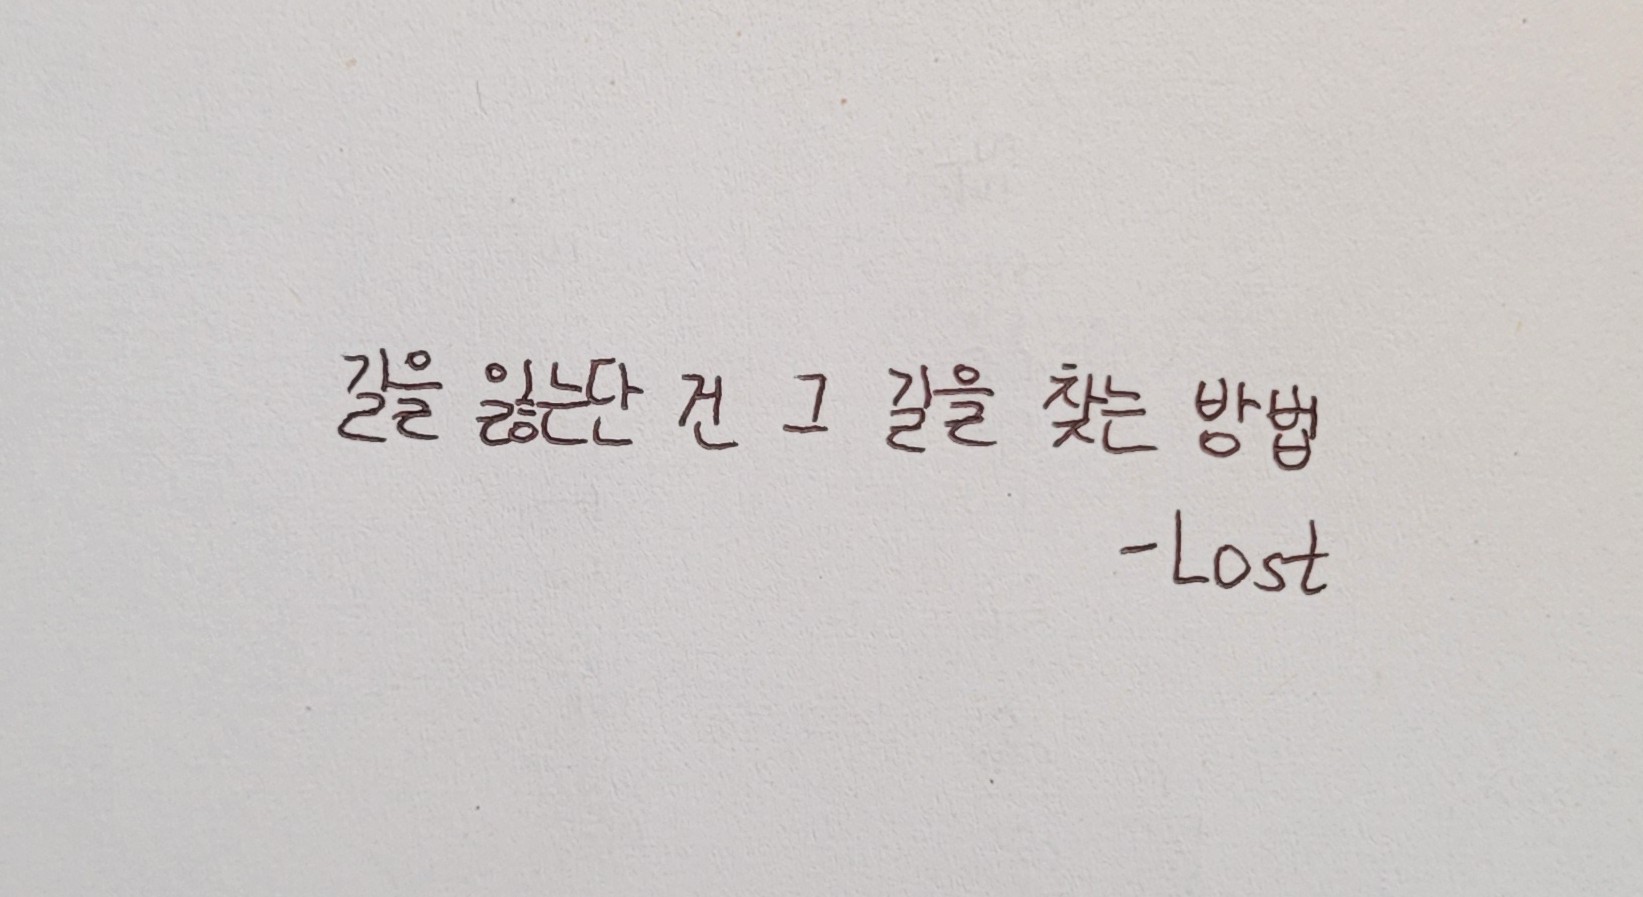 길을 잃는단 건 그 길을 찾는 방법
-Lost